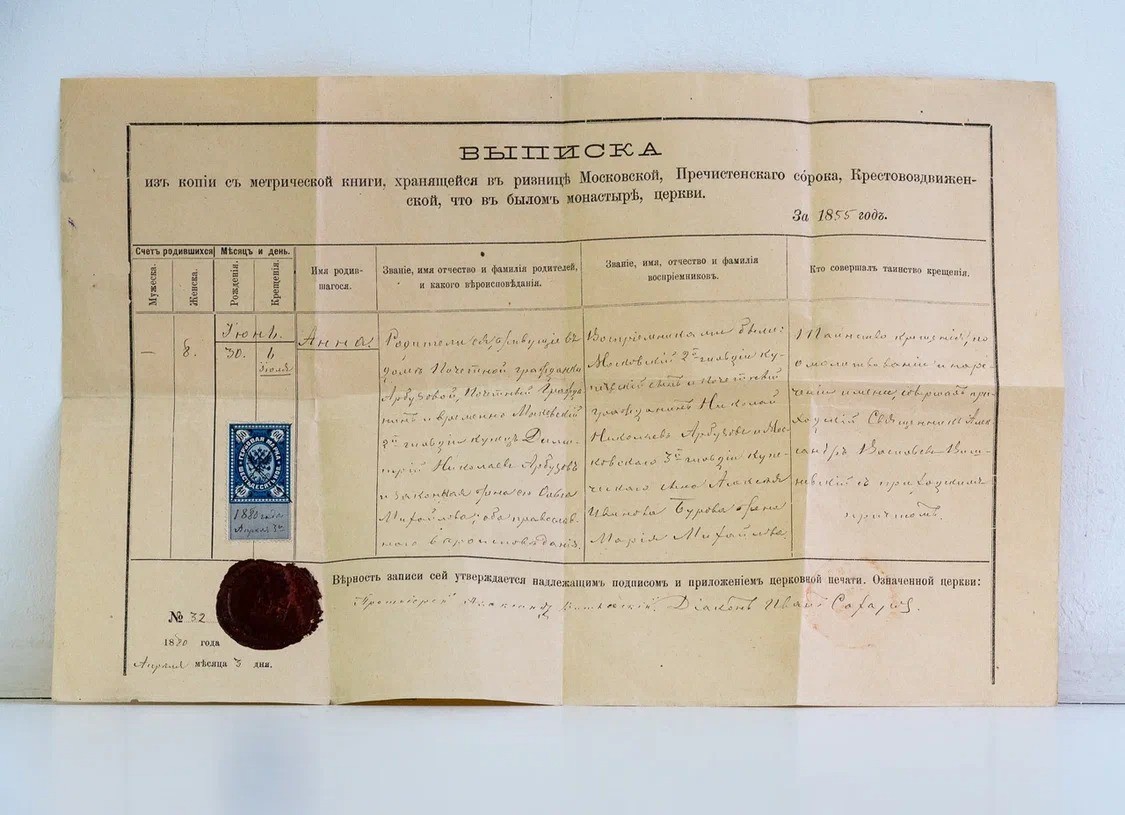 ВЫПИСКА
изъ копіи съ метрической книги, хранящейся въ ризницѣ Московской, Пречистенскаго со́рока, Крестовоздвижен-
ской, что въ быломъ монастырѣ, церкви.
За 1855 годъ.
Счетъ родившихся
Мѣсяцъ и день.
Мужеска.
Женска.
Рожденія.
Крещенія.
Имя родив-
шагося.
Званіе, имя отчество и фамилія родителей,
и какого вѣроисповѣданія.
Званіе, имя, отчество и фамилія
воспріемниковъ.
Кто совершалъ таинство крещенія.
—
8.
Іюнь.
30.
6
Іюля
Анна.
Родители ея: живущіе въ
домѣ Почетной гражданки
Арбузовой, Почетный Гражда
нинъ и временно Московскій
2й гильдіи купецъ Дими-
трій Николаевъ Арбузовъ
и законная жена его Ольга
Михайлова; оба православ-
наго вѣроисповѣданія.
Воспріемниками были:
Московскій 2й гильдіи ку-
печескій сынъ и Почетный
гражданинъ Николай
Николаевъ Арбузовъ и Мос-
ковскаго 3й гильдіи купе-
ческаго сына Алексѣя
Иванова Бурова жена
Марія Михайлова.
Таинство крещенія по
молитвованіи и наре-
ченіи имени совершалъ при-
ходскій Священникъ Алек-
сандръ Васильевъ
съ приходскимъ
причтомъ.
60
60
ГЕРБОВАЯ МАРКА
ШЕСТЬДЕСЯТЪ КОП.
60
60
1880 года
Апрѣля 3го
Вѣрность записи сей утверждается надлежащимъ подписомъ и приложеніемъ церковной печати. Означенной церкви:
Протоіерей Александръ Діаконъ Иванъ
№ 32
1880 года
Апрѣля мѣсяца 3 дня.